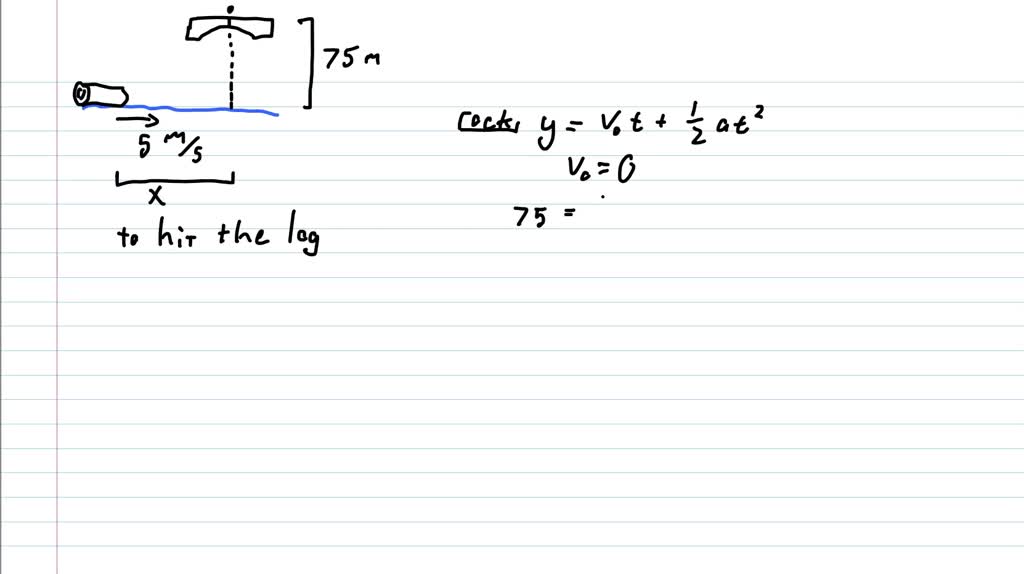 75 m
5 m/s
x
to hit the log
rock, y = v₀t + 1/2 at²
v₀ = 0
75 =